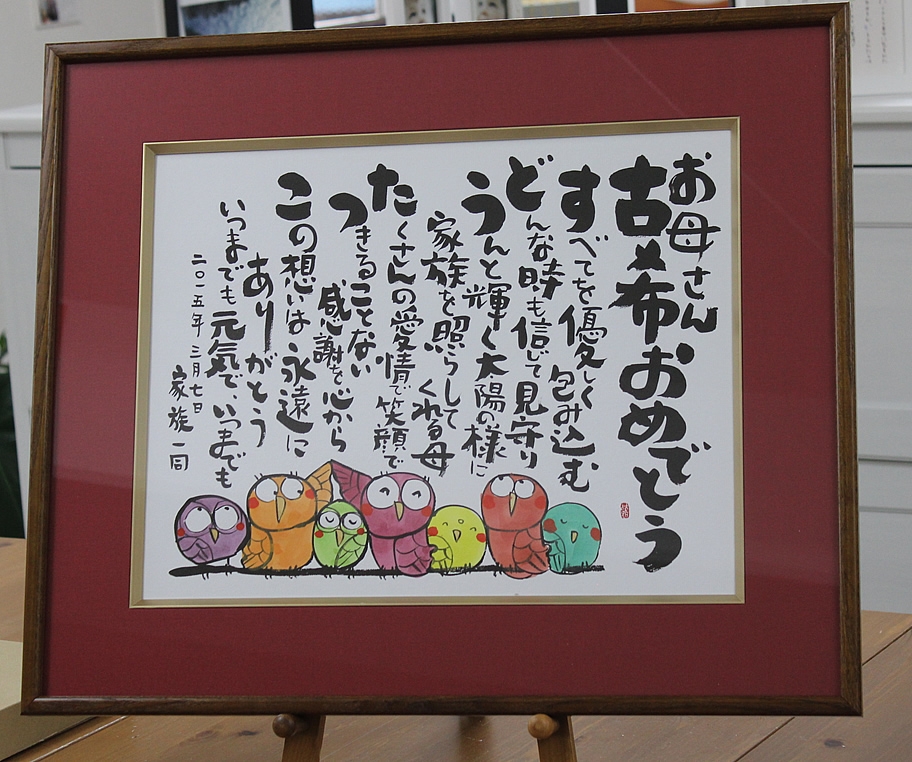 お母さん
古希おめでとう
すべてを優しく包み込む
どんな時も信じて見守り
うんと輝く太陽の様に
家族を照らしてくれる母
たくさんの愛情で笑顔で
つきることない
感謝を心から
この想いは永遠に
ありがとう
いつまでも元気で、いつまでも
二〇一五年三月七日
家族一同